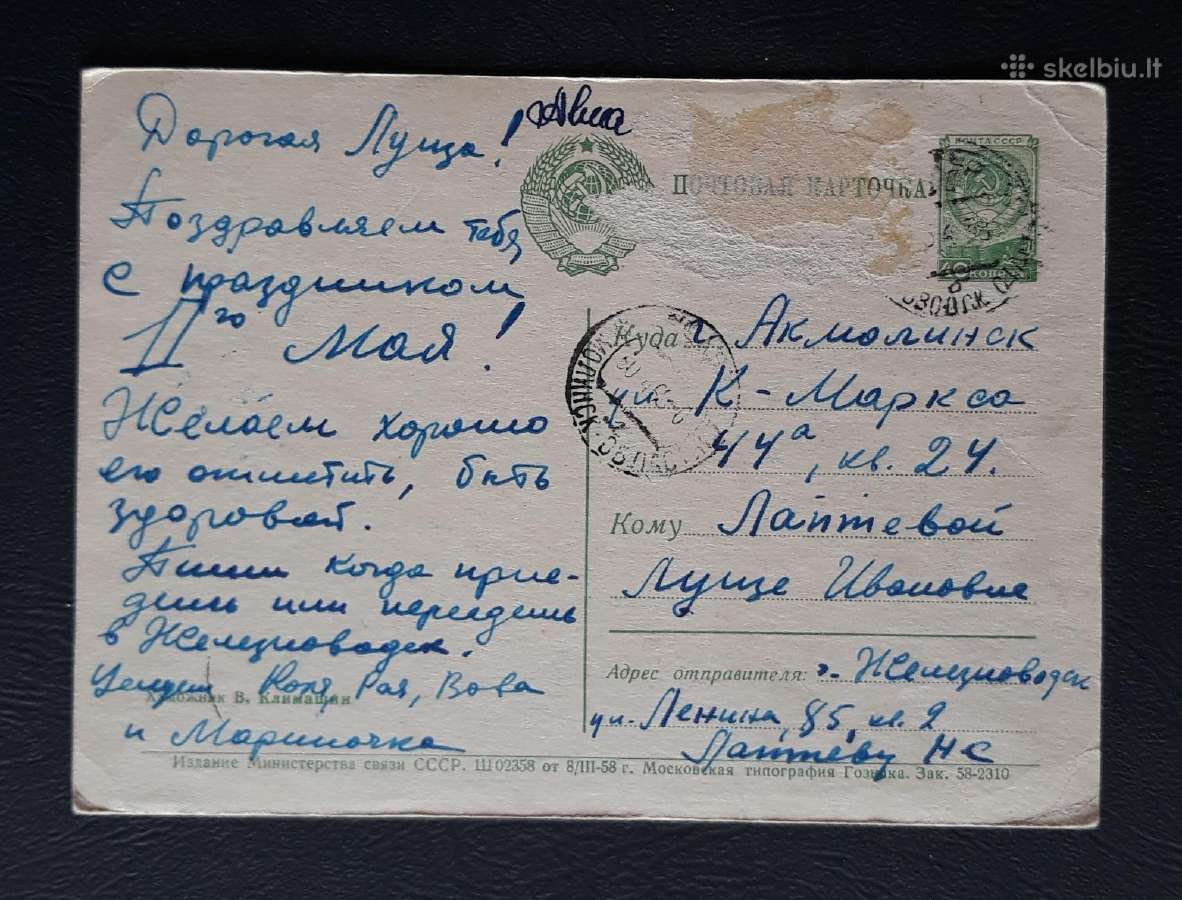 skelbiu.lt
Авиа
Дорогая Луща!
Поздравляем тебя
с праздником
1го Мая!
Желаем хорошо
его отметить, быть
здоровой.
Пиши когда прие-
дешь или переедешь
в Железноводск.
Целуем Коля, Рая, Вова
и Мариночка
Художник В. Климашин
ПОЧТОВАЯ КАРТОЧКА
ПОЧТА СССР
КОПЕЕК
Куда г. Акмолинск
ул. К-Маркса
44а, кв. 24.
Кому Лаптевой
Луще Ивановне
Адрес отправителя: г. Железноводск
ул. Ленина, 85, кв. 2
Лаптеву НС
Издание Министерства связи СССР. Ш 02358 от 8/III-58 г. Московская типография Гознака. Зак. 58-2310